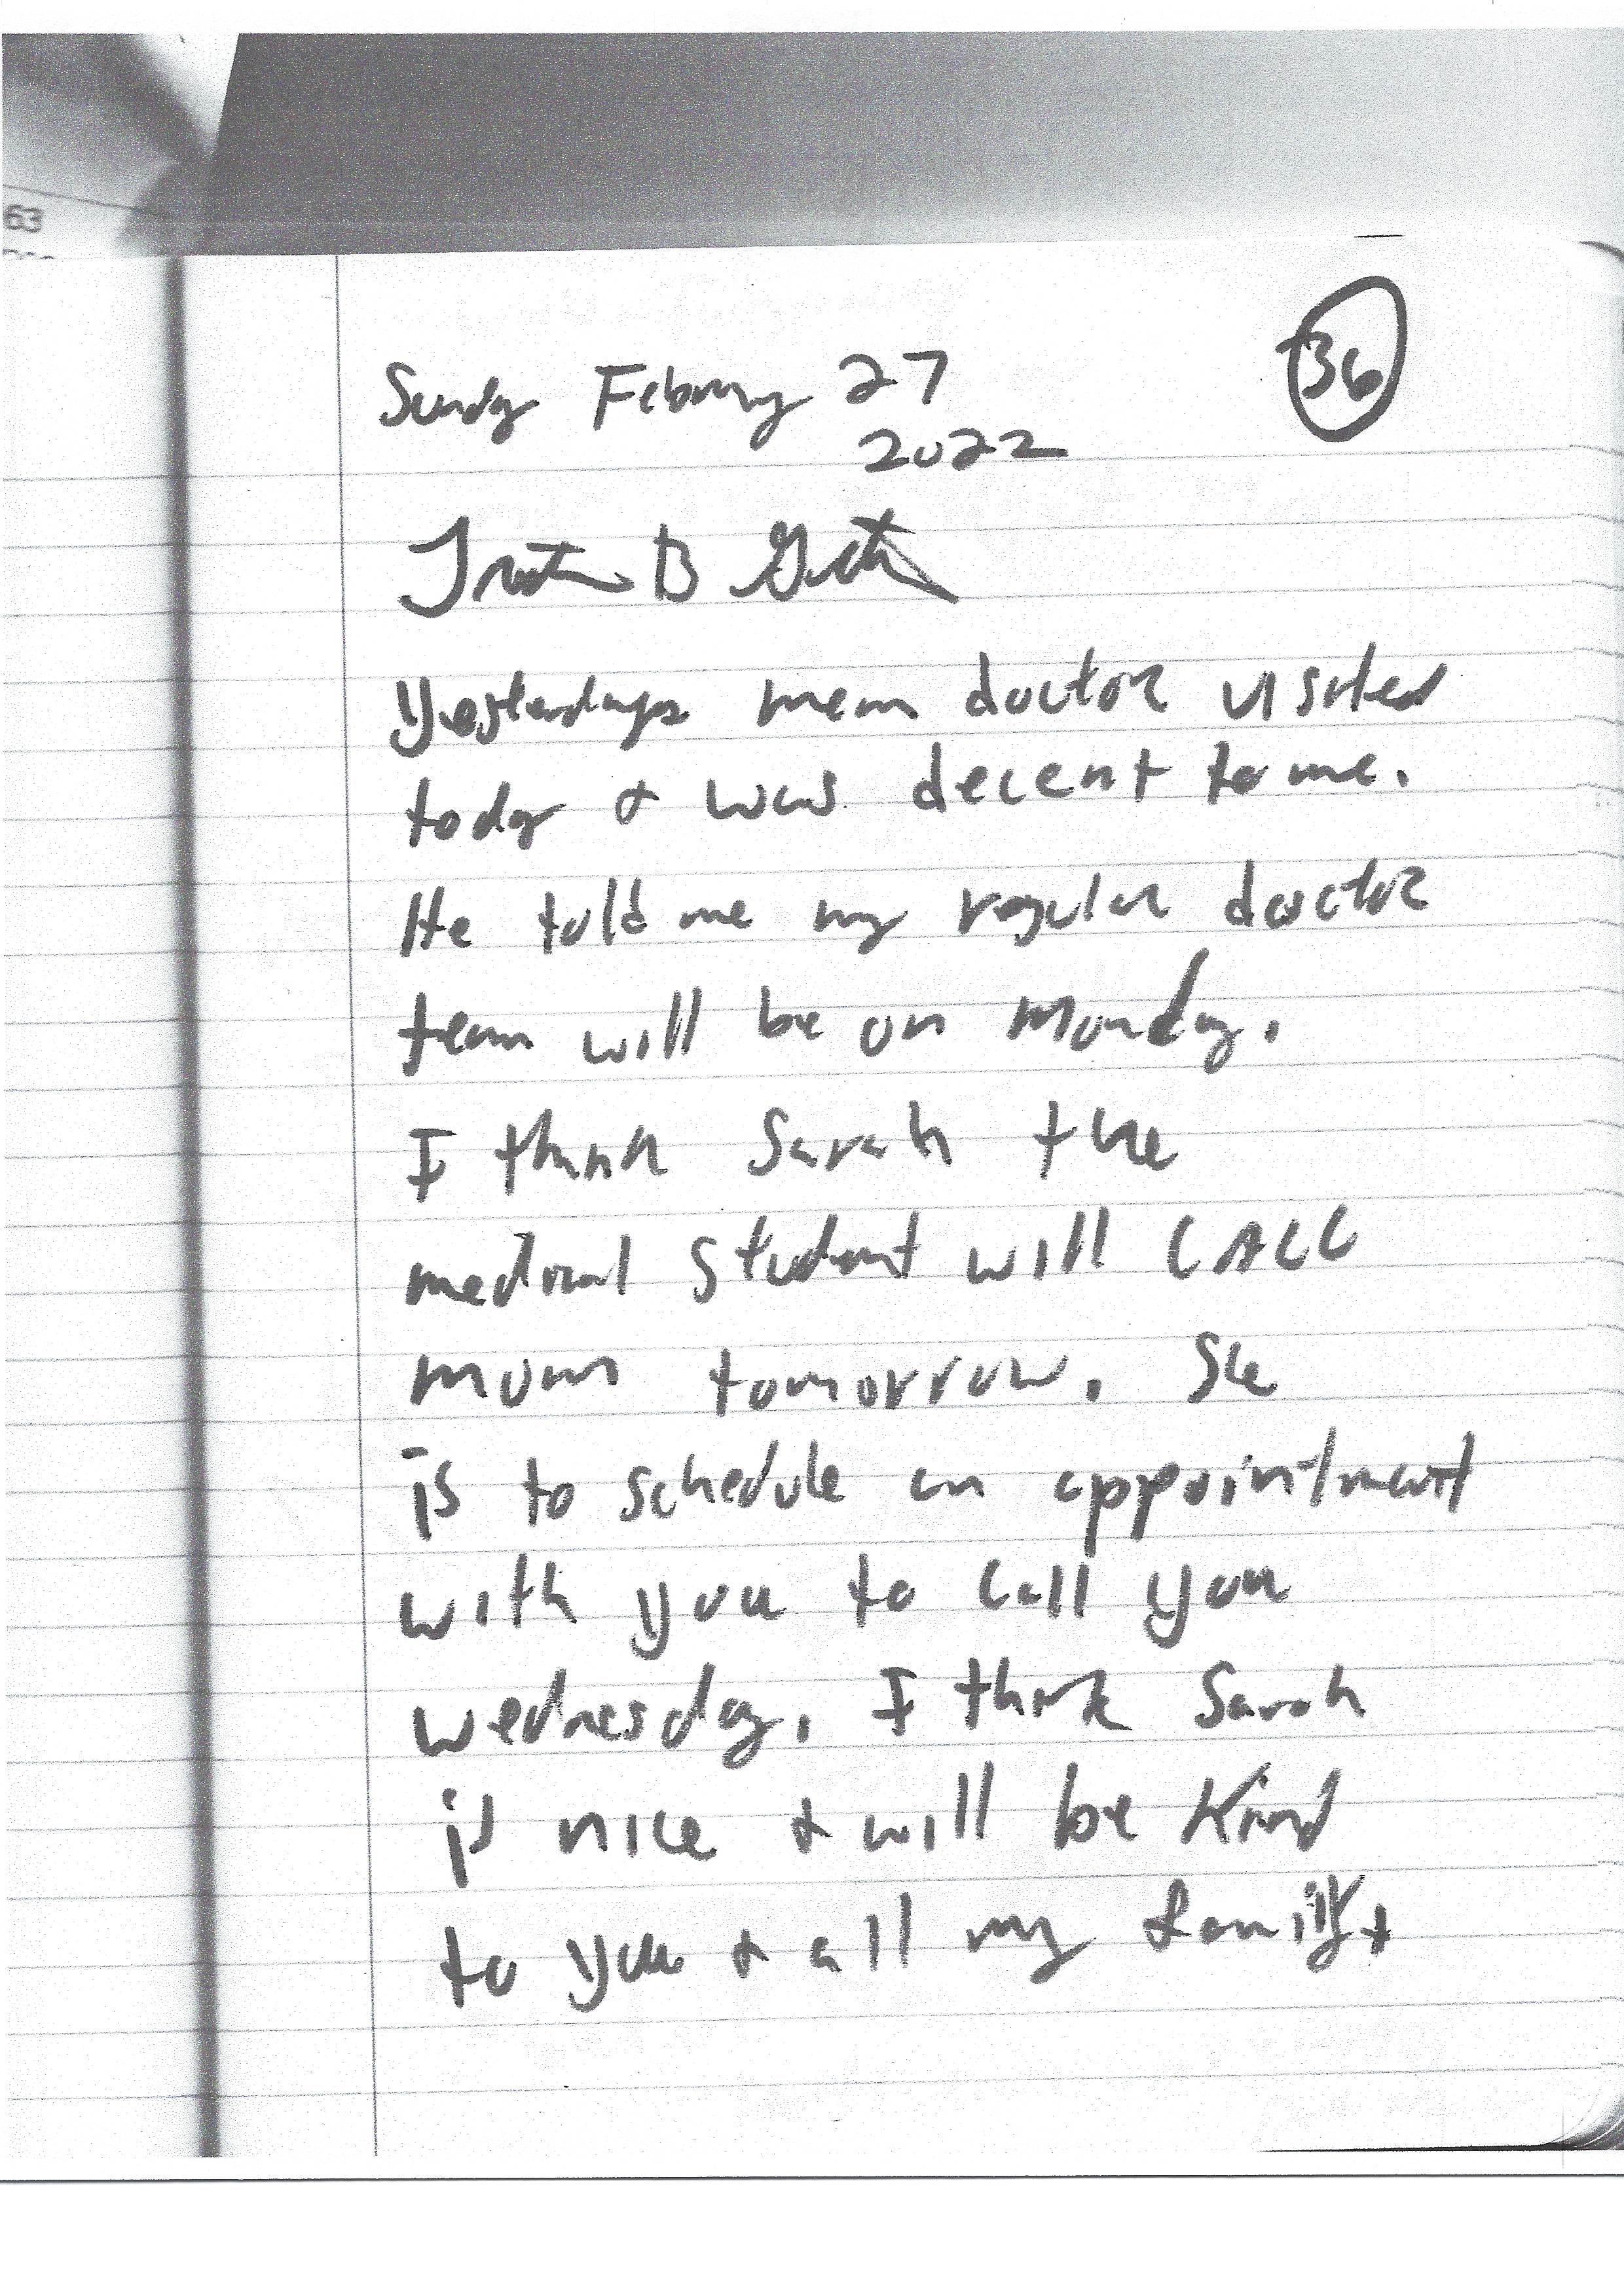 63
36
Sunday February 27
2022
B
Yesterdays mean doctor visited
today & was decent to me.
He told me my regular doctor
team will be on Monday.
I think Sarah the
medical student will CALL
mom tomorrow. She
is to schedule an appointment
with you to call you
Wednesday. I think Sarah
is nice & will be kind
to you & all my family +